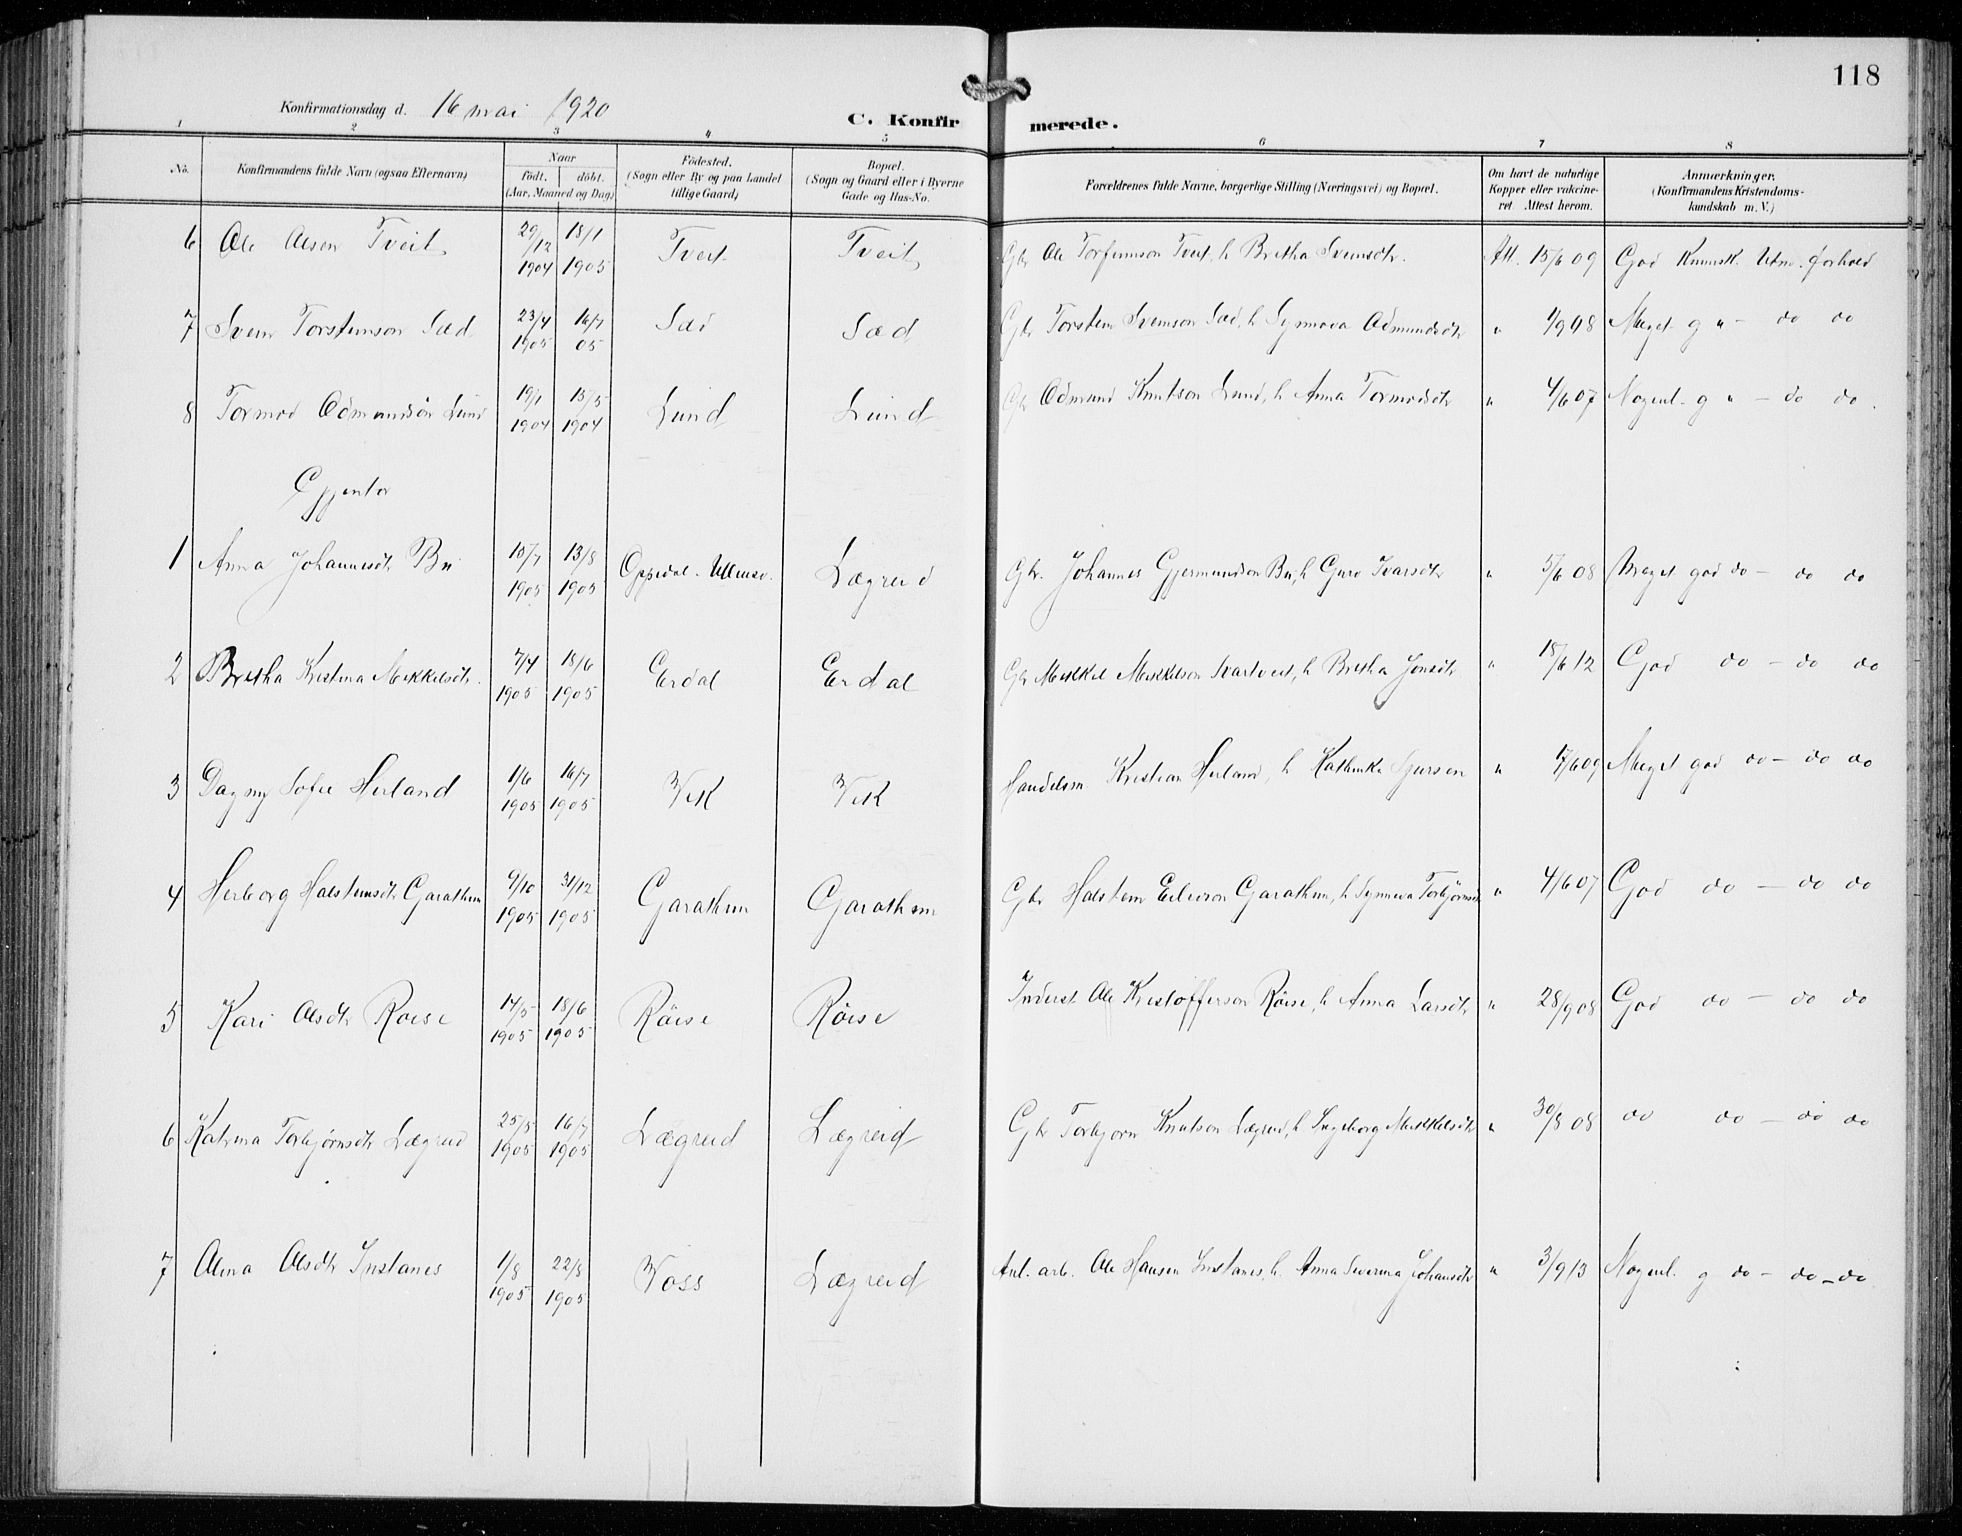 118
Konfirmationsdag d. 16 mai 1920
C. Konfirmerede.
1 2 3 4 5 6 7 8
No. Konfirmandens fulde Navn (ogsaa Efternavn) Naar født. døbt. (Aar, Maaned og Dag) Fødested. (Sogn eller By og paa Landet tillige Gaard) Bopæl. (Sogn og Gaard eller i Byerne Gade og Hus-No. Forældrenes fulde Navne, borgerlige Stilling (Næringsvei) og Bopæl. Om havt de naturlige Kopper eller vakcineret. Attest herom. Anmærkninger. (Konfirmandens Kristendomskundskab m. V.)
6 Ole Olsen Tveit 29/12 1904 18/1 1905 Tveit Tveit Gbr Ole Torfinnson Tveit, h Bretha Svensdtr. Att. 15/6 09 God Kunnsk. Udm. forhold
7 Svein Torsteinson Sæd 23/4 1905 16/7 05 Sæd Sæd Gbr Torstein Sveinson Sæd, h Synnøva Odmundsdtr " 1/9 08 Meget g " - do do
8 Tormod Odmundsön Lund 19/1 1904 15/5 1904 Lund Lund Gbr Odmund Knutson Lund, h Anna Tormodsdtr " 4/6 07 Nogenl. g " - do do.
Gjentor
1 Anna Johannesdtr Bu 10/7 1905 13/8 1905 Oppedal. Ullensv. Lægreid Gbr. Johannes Gjermundson Bu, h Guro Ivarsdtr " 5/6 08 Meget god do - do do
2 Bretha Kristina Mikkelsdtr. 7/4 1905 18/6 1905 Erdal Erdal Gbr Mikkel Mikkelson Svartveit, h Bretha Jonsdtr " 18/6 12 God do - do do
3 Dagny Sofie Herland 1/6 1905 16/7 1905 Vik Vik Handelsm Kristian Herland, h Kathinka Sjursen " 17/6 09 Meget god do - do do
4 Herborg Halsteinsdtr Garathun 9/10 1905 31/12 1905 Garathun Garathun Gbr Halstein Eilivson Garathun, h Synneva Torbjørnsd " 4/6 07 God do - do do
5 Kari Olsdtr Röise 14/5 1905 18/6 1905 Röise Röise Inderst Ole Kristofferson Röise, h Anna Larsdtr " 28/9 08 God do - do do
6 Katrina Torbjørnsdtr Lægreid 25/5 1905 16/7 1905 Lægreid Lægreid Gbr Torbjorn Knutson Lægreid, h Ingeborg Mikkelsdtr " 30/8 08 do do - do do
7 Olina Olsdtr Instanes 1/8 1905 22/8 1905 Voss Lægreid Anl. arb. Ole Hansen Instanes, h Anna Severina Johansdtr " 3/9 13 Nogenl. g do - do - do